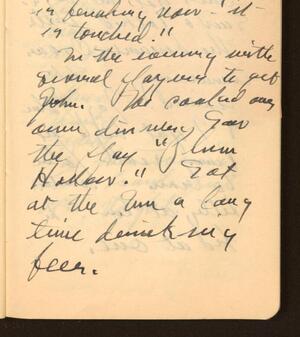 is breaking now - it
is touched!!
In the evening with
several players to get
John. We cooked our
own dinners, Saw
the play "
Hollow." Sat
at the Inn a long
time drinking
beer.